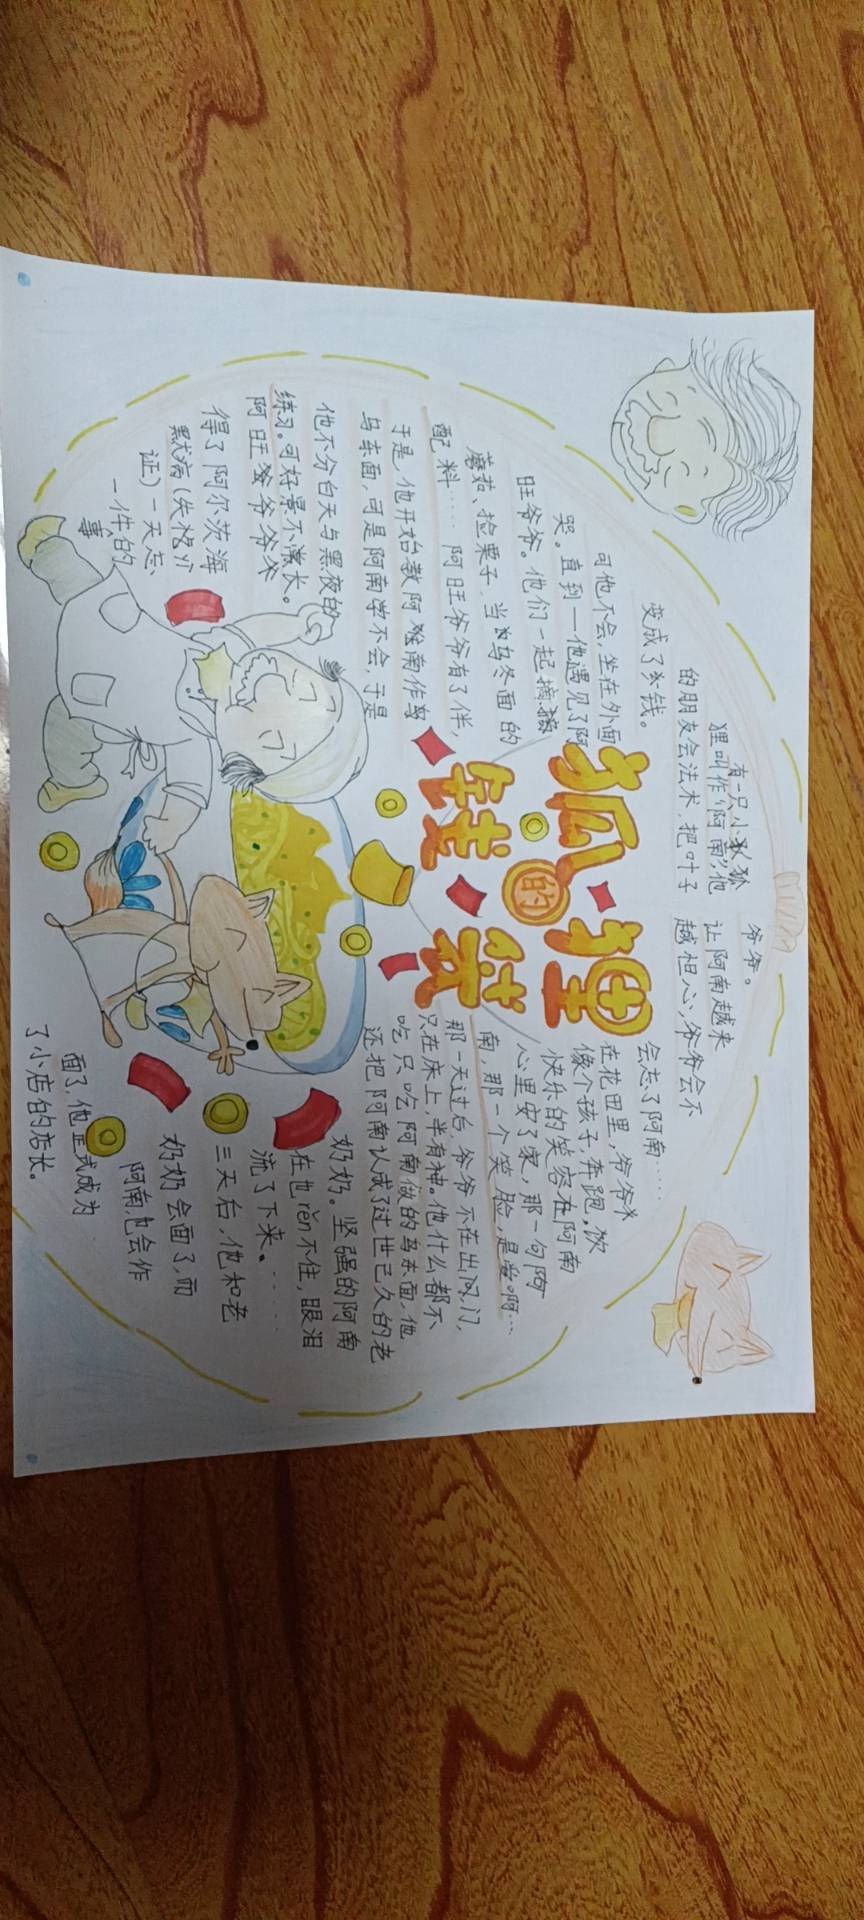 狐狸
的
钱袋
有一只小狐狐
狸叫作“阿南”他
的朋友会法术,把叶子
变成了钱。
可他不会,坐在外面
哭。直到一他遇见了阿
旺爷爷。他们一起摘
蘑菇、捡栗子,当乌冬面的
配料……阿旺爷爷有了伴,
于是,他开始教阿南作乌
乌东面,可是阿南学不会,于是
他不分白天与黑夜的
练习。可好景不长。
阿旺爷爷爷爷
得了阿尔茨海
默犬病(失
证)一天忘
一件的
事
爷爷。
让阿南越来
越担心,爷爷会不
会忘了阿南……
在花田里,爷爷
像个孩子,奔跑,欢
快乐的笑容在阿南
心里安了家,那一句阿
南,那一个笑脸,是爱啊…
那一天过后,爷爷不在出门,
只在床上,半有神。他什么都不
吃只吃阿南做的乌东面,他
还把阿南认成了过世已久的老
奶奶。坚强的阿南
在也rěn不住,眼泪
流了下来。……
三天后,他和老
奶奶会面了,而
阿南也会作
面了,他正式成为
了小店的店长。